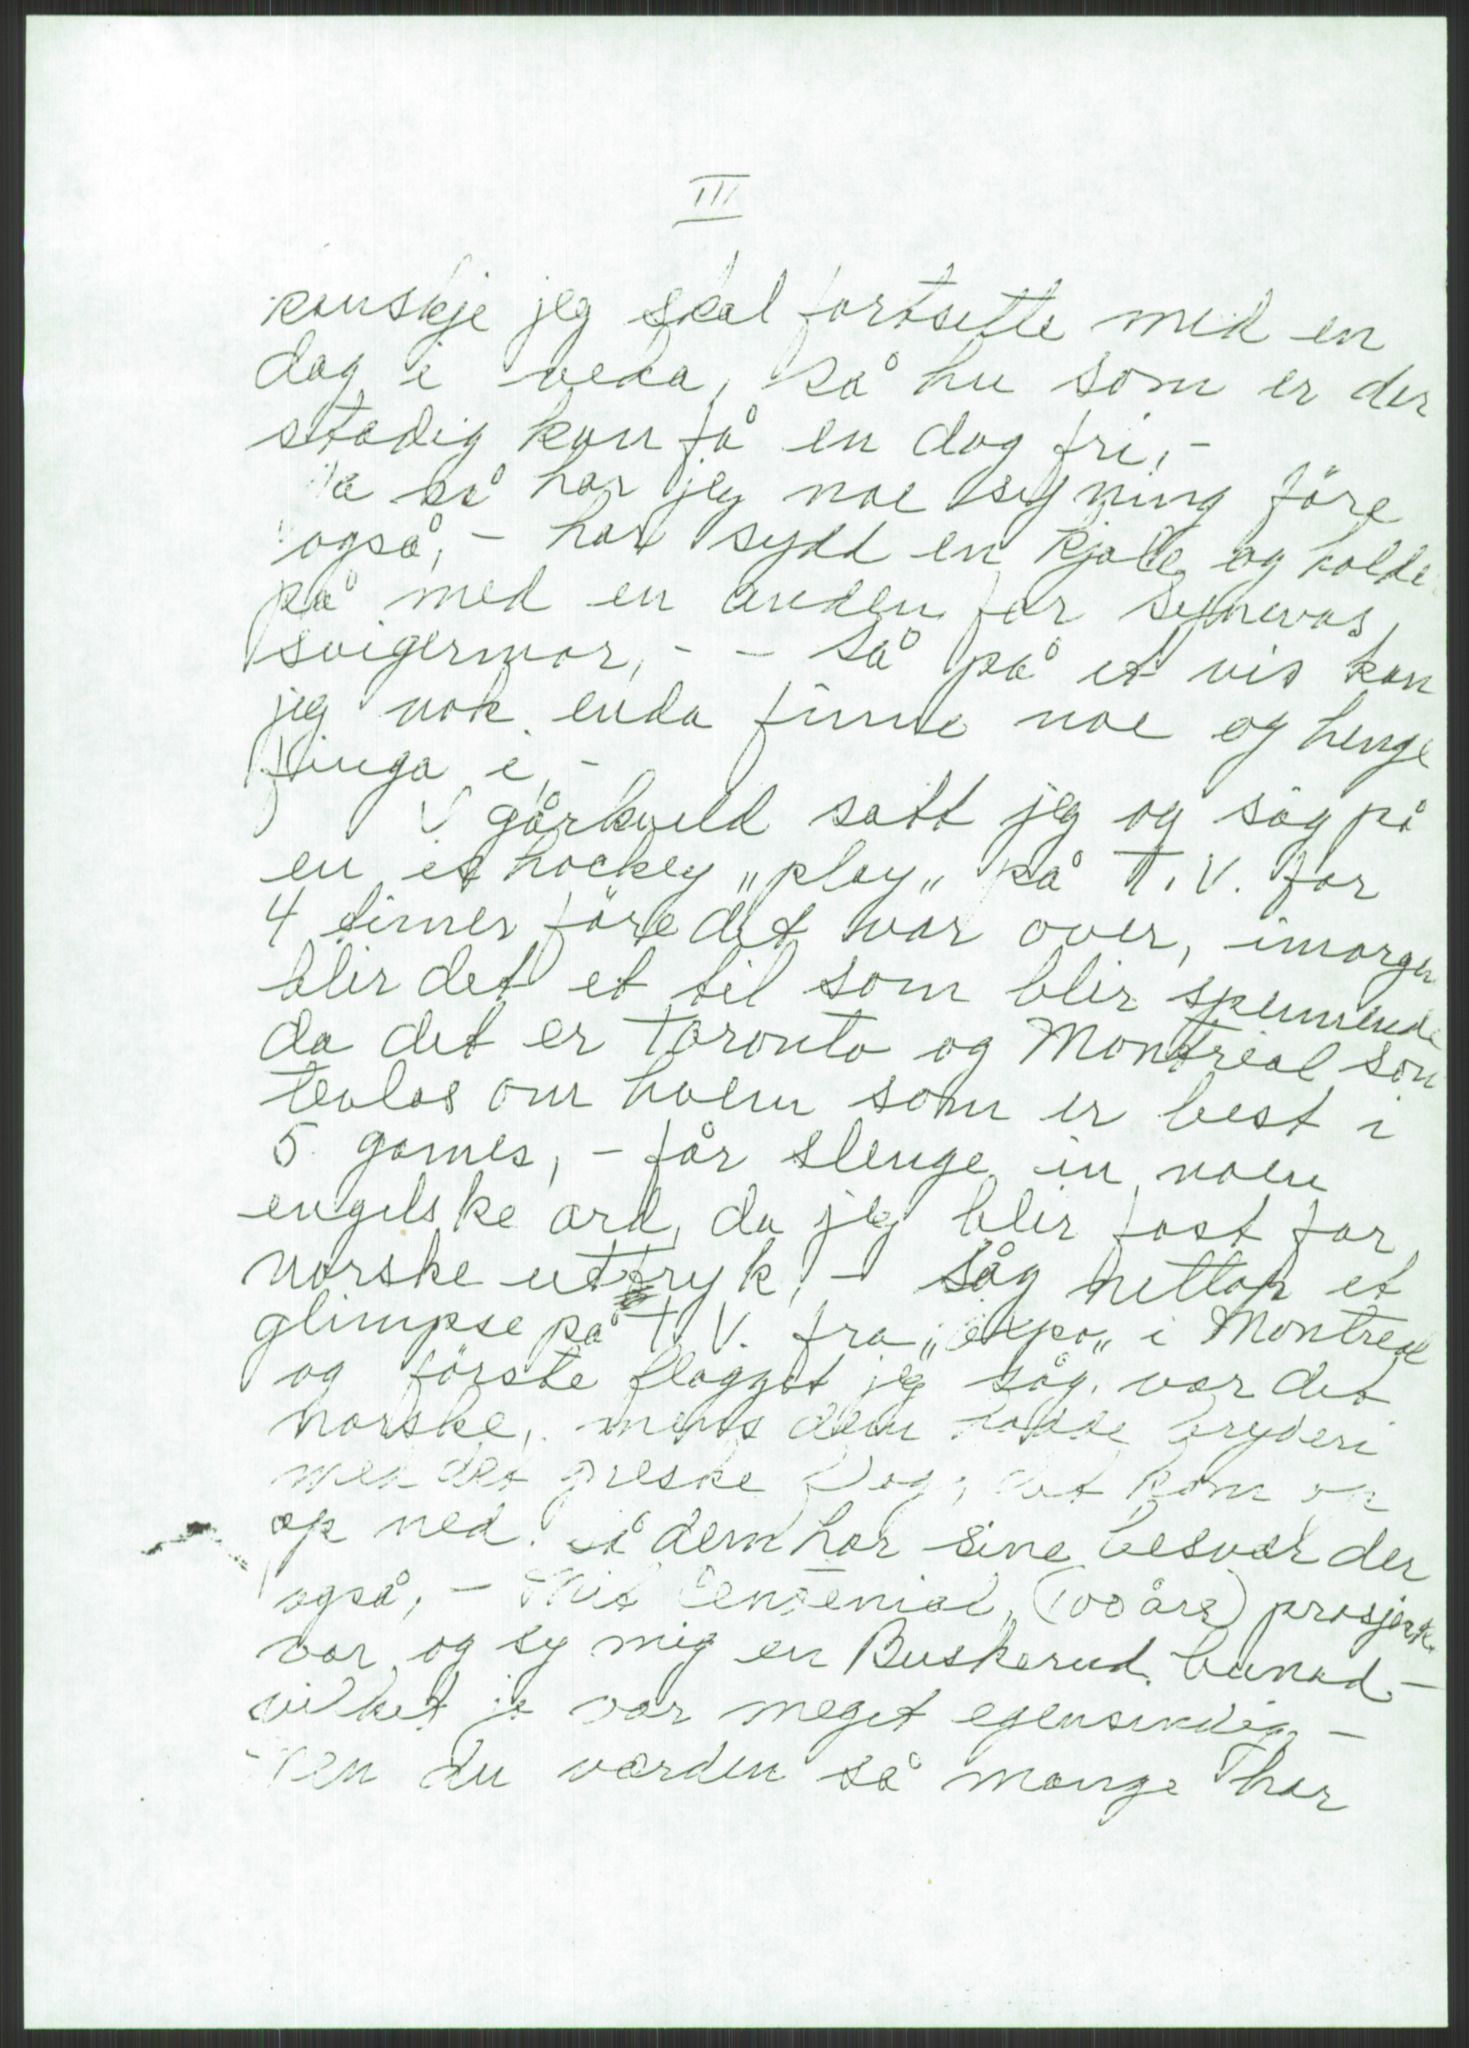 III
kanskje jeg skal fortsette med en
dag i veka, så hu som er der
stadig kan få en dag fri, -
Ja så har jeg noe syning före
også, - har sydd en kjole og holder
på med en anden for Synevas
svigermor, - - så på et vis kan
jeg nok enda finne noe og henge
finga i, -
I gårkveld satt jeg og såg på
en ishockey „play„ på T.V. for
4 timer före det var over, imorgen
blir det et til som blir spennende
da det er Toronto og Montreal som
tevles om hvem som er best i
5 games, - får slenge in noen
engelske ord, da jeg blir fast for
norske uttryk, - Såg nettop et
glimpse på T.V. fra „Expo„ i Montreal
og förste flagget jeg såg var det
norske, mens dem hadde bryderi
med det greske flag, det kom
op ned. Så dem har sine besvær der
også, - Mit Centenial, (100 åre) prosjekt
var og sy mig en Buskerud bunad, -
vilket je var meget egensindig -
Men du værden så mange Thor